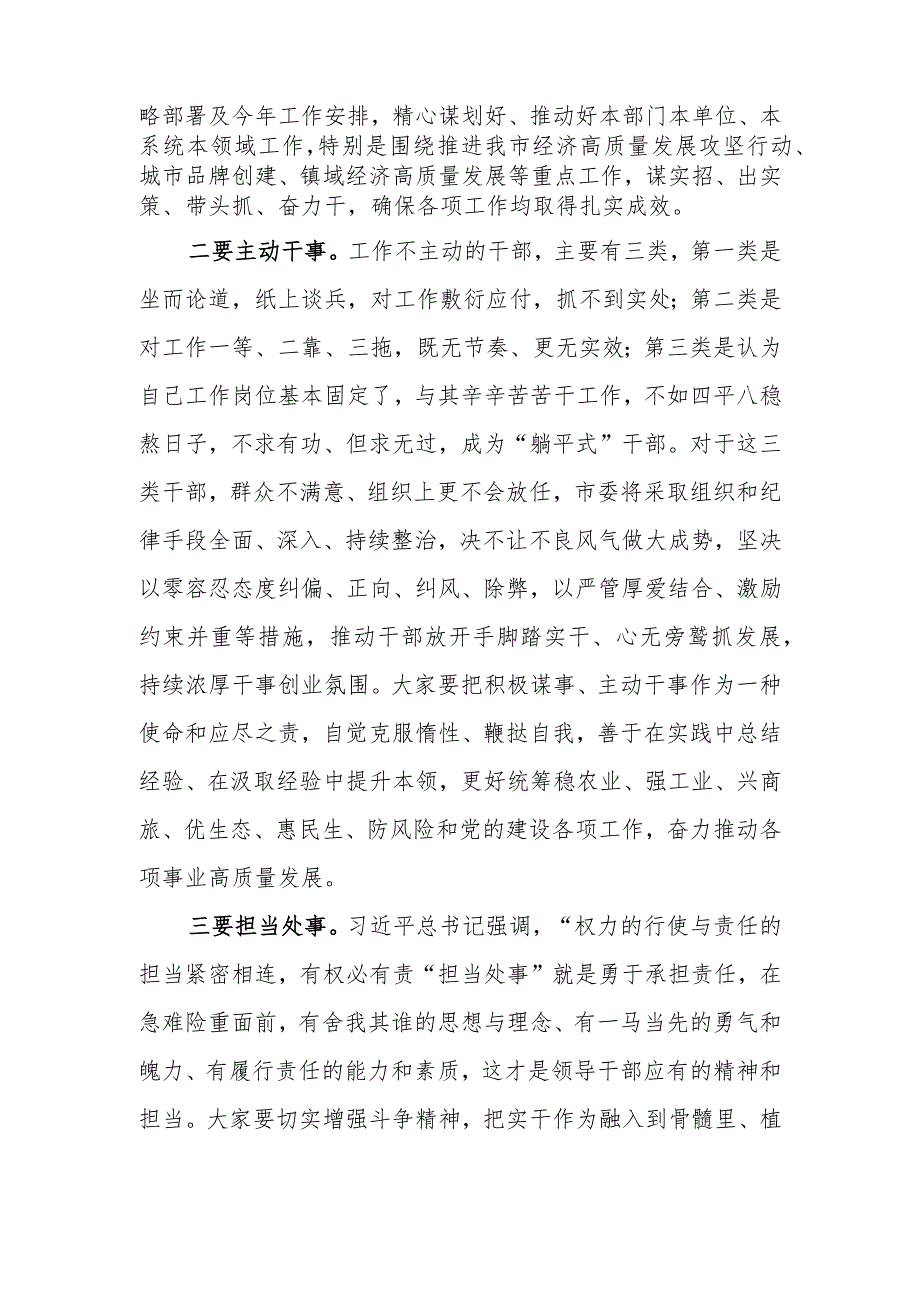 略部署及今年工作安排，精心谋划好、推动好本部门本单位、本
系统本领域工作，特别是围绕推进我市经济高质量发展攻坚行动、
城市品牌创建、镇域经济高质量发展等重点工作，谋实招、出实
策、带头抓、奋力干，确保各项工作均取得扎实成效。
二要主动干事。工作不主动的干部，主要有三类，第一类是
坐而论道，纸上谈兵，对工作敷衍应付，抓不到实处；第二类是
对工作一等、二靠、三拖，既无节奏、更无实效；第三类是认为
自己工作岗位基本固定了，与其辛辛苦苦干工作，不如四平八稳
熬日子，不求有功、但求无过，成为“躺平式”干部。对于这三
类干部，群众不满意、组织上更不会放任，市委将采取组织和纪
律手段全面、深入、持续整治，决不让不良风气做大成势，坚决
以零容忍态度纠偏、正向、纠风、除弊，以严管厚爱结合、激励
约束并重等措施，推动干部放开手脚踏实干、心无旁鹜抓发展，
持续浓厚干事创业氛围。大家要把积极谋事、主动干事作为一种
使命和应尽之责，自觉克服惰性、鞭挞自我，善于在实践中总结
经验、在汲取经验中提升本领，更好统筹稳农业、强工业、兴商
旅、优生态、惠民生、防风险和党的建设各项工作，奋力推动各
项事业高质量发展。
三要担当处事。习近平总书记强调，“权力的行使与责任的
担当紧密相连，有权必有责“担当处事”就是勇于承担责任，在
急难险重面前，有舍我其谁的思想与理念、有一马当先的勇气和
魄力、有履行责任的能力和素质，这才是领导干部应有的精神和
担当。大家要切实增强斗争精神，把实干作为融入到骨髓里、植